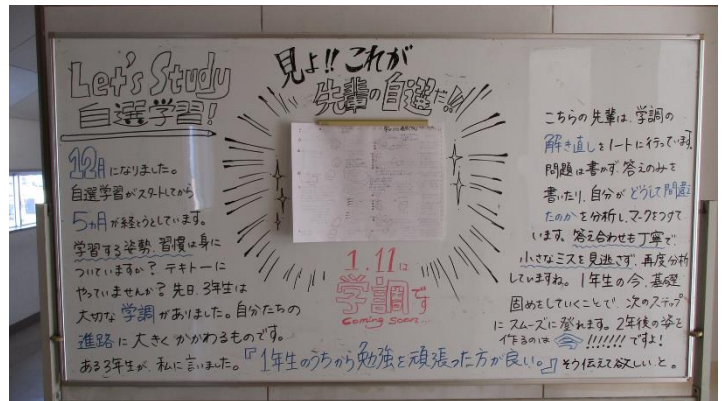 Let's Study
自選学習!
12月になりました。
自選学習がスタートしてから
5ヵ月が経とうとしています。
学習する姿勢、習慣は身に
ついていますか?テキトーに
やっていませんか?先日、3年生は
大切な学調がありました。自分たちの
進路に大きくかかわるものです。
ある3年生が、私に言いました。『1年生のうちから勉強を頑張った方が良い。』そう伝えて欲しいと。
見よ!!これが
先輩の自選だ!!
1.11は
学調です
Coming Soon...
こちらの先輩は、学調の
解き直しをノートに行っています。
問題は書かず、答えのみを
書いたり、自分がどうして間違え
たのかを分析し、マークをつけて
います。答え合わせも丁寧で、
小さなミスを見逃さず、再度分析
していますね。1年生の今、基礎
固めをしていくことで、次のステップ
にスムーズに登れます。2年後の姿を
作るのは今!!!!!!!ですよ!